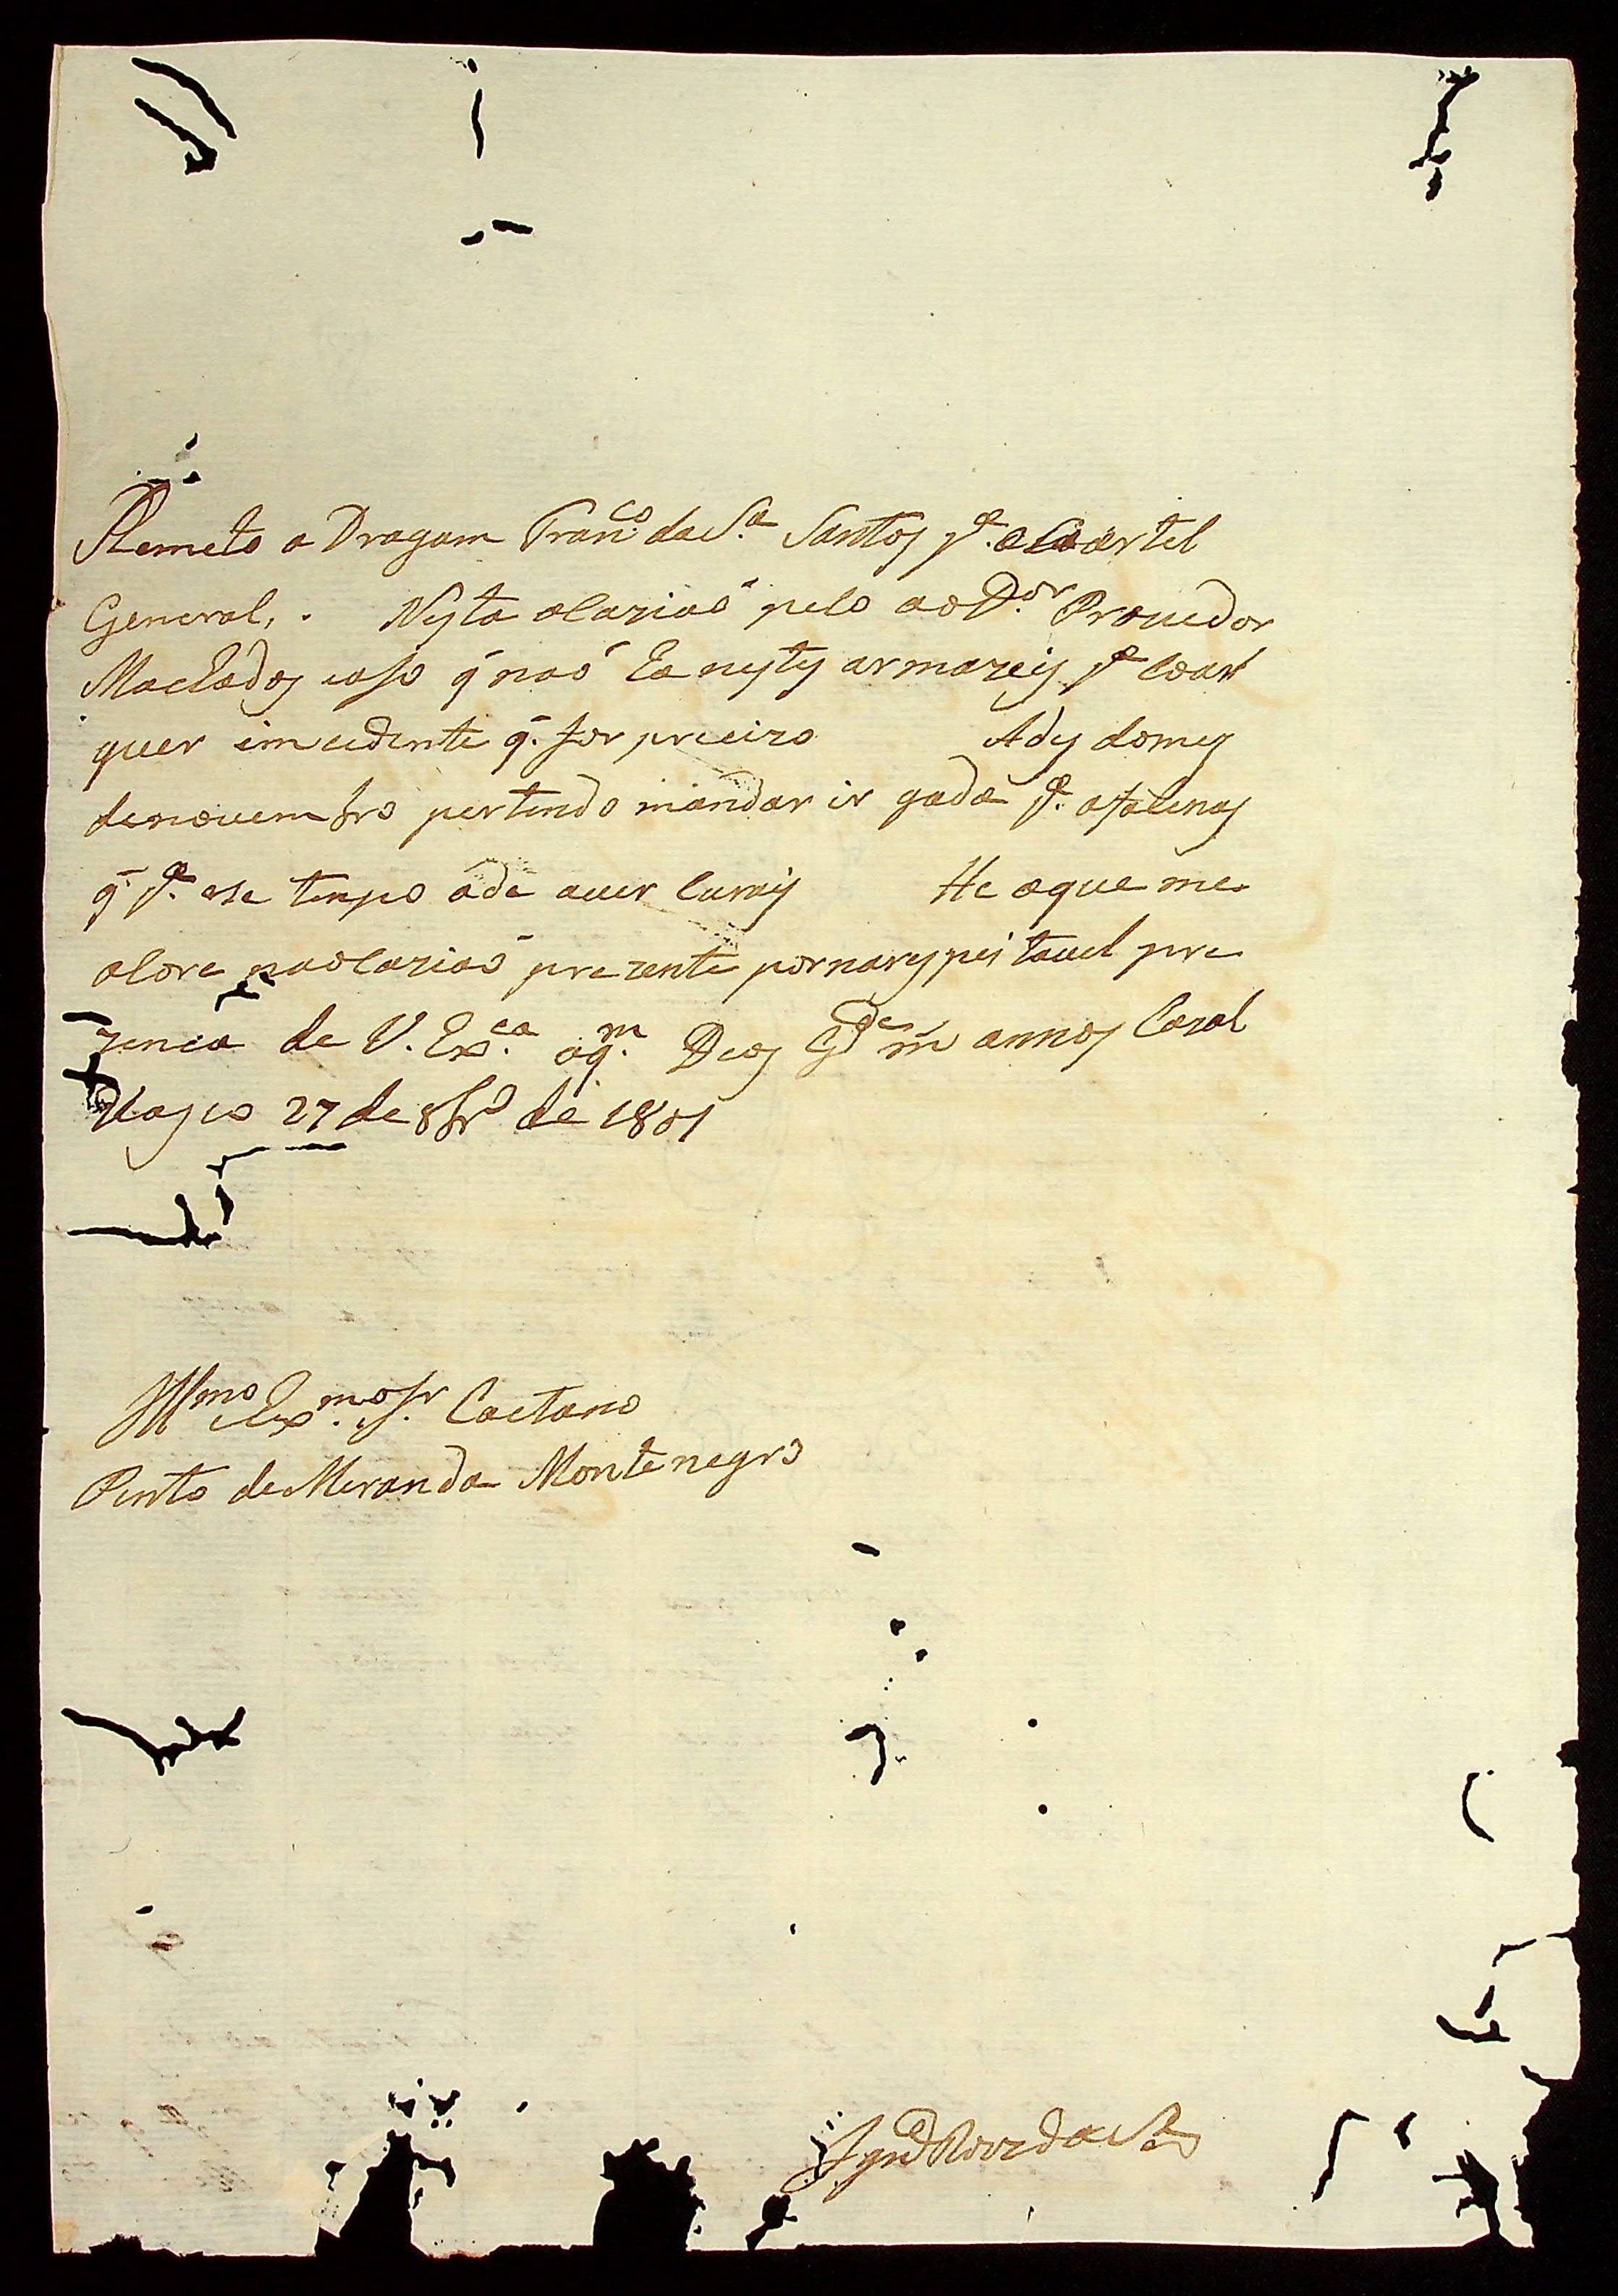 Remeto o Dragam Fran.co da S.a Santos p.a o Coartel
General, . Nesta ocazião pesso ao D.or Provedor
Machados cazo q̃ não ha nestes armazeis p.a coal
quer incidente q̃. for preciro Ades do mes
denovembro pertendo mandar ir gado p.a as salinas
q̃. p.a ese tempo ade aver curais He oque me
ocore naocazião prezente pornarespeitavel pre
zenca de V. Ex.ca aq.m Deos G.de m̃ annos Cazal
vasco 27 de 8br.o de 1801
Ill.mo e Ex.mo Sr. Caetano
Pinto de Meranda Montenegro